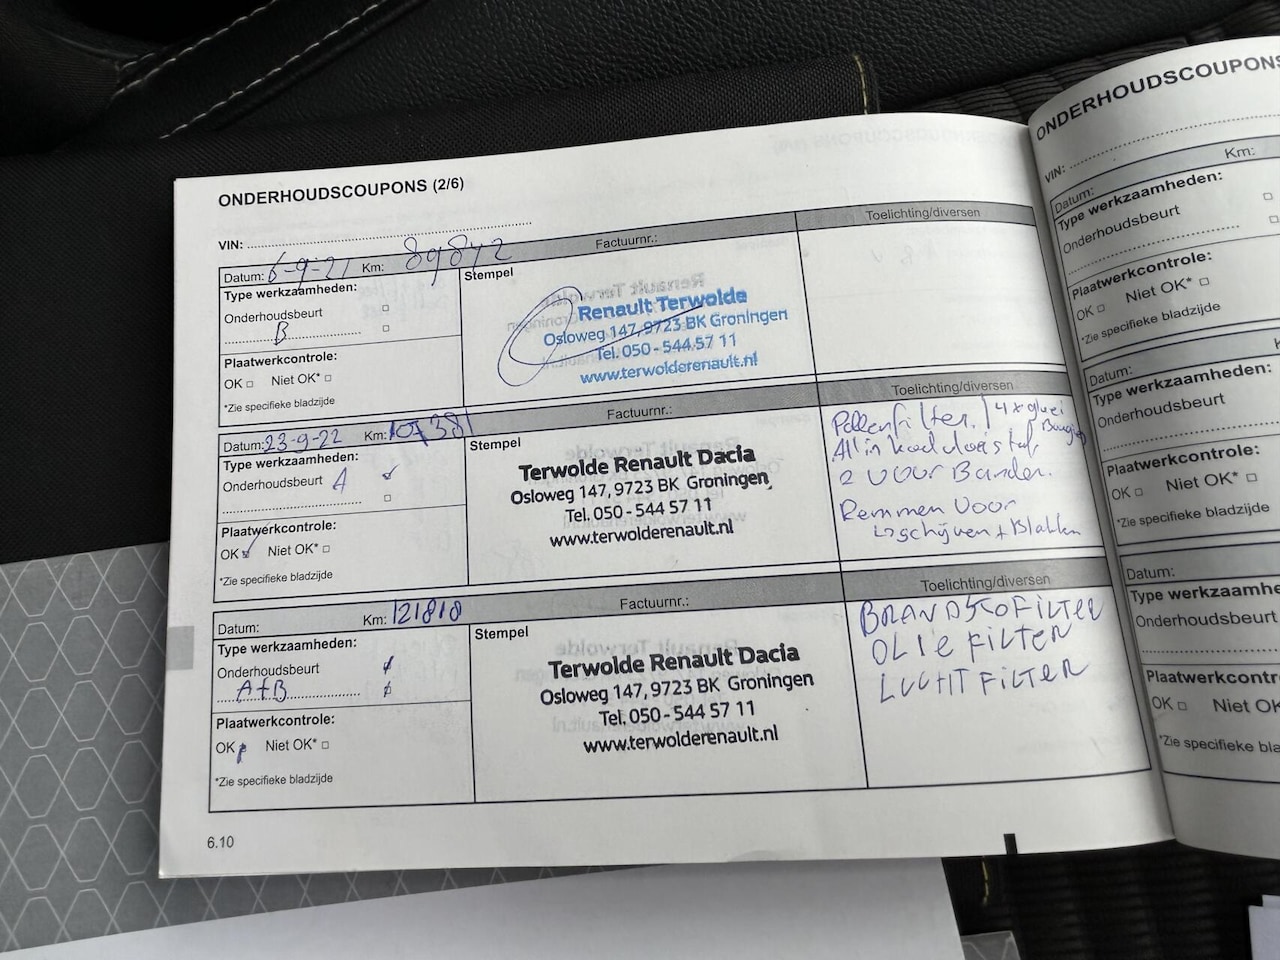 ONDERHOUDSCOUPONS (2/6)
VIN:
Datum: 6-9-21 Km: 89842 Factuurnr.: Toelichting/diversen
Type werkzaamheden:
Onderhoudsbeurt
B
Plaatwerkcontrole:
OK Niet OK*
*Zie specifieke bladzijde
Stempel
Renault Terwolde
Osloweg 147, 9723 BK Groningen
Tel. 050 - 544 57 11
www.terwolderenault.nl
Datum: 23-9-22 Km: 107381 Factuurnr.: Toelichting/diversen
Type werkzaamheden:
Onderhoudsbeurt A
Plaatwerkcontrole:
OK Niet OK*
*Zie specifieke bladzijde
Stempel
Terwolde Renault Dacia
Osloweg 147, 9723 BK Groningen
Tel. 050 - 544 57 11
www.terwolderenault.nl
Pollenfilter. 4x gloei
Bougies
2 Voor Banden.
Remmen Voor
schijven + Blokken
Datum: Km: 121818 Factuurnr.: Toelichting/diversen
Type werkzaamheden:
Onderhoudsbeurt
A+B
Plaatwerkcontrole:
OK Niet OK*
*Zie specifieke bladzijde
Stempel
Terwolde Renault Dacia
Osloweg 147, 9723 BK Groningen
Tel. 050 - 544 57 11
www.terwolderenault.nl
BRANDSTOFILTER
OLIE FILTER
LUCHT FILTER
6.10
ONDERHOUDSCOUPONS
VIN:
Datum: Km:
Type werkzaamheden:
Onderhoudsbeurt
Plaatwerkcontrole:
OK Niet OK*
*Zie specifieke bladzijde
Datum:
Type werkzaamheden:
Onderhoudsbeurt
Plaatwerkcontrole:
OK Niet OK*
*Zie specifieke bladzijde
Datum:
Type werkzaamhe
Onderhoudsbeurt
Plaatwerkcontr
OK Niet OK
*Zie specifieke bla